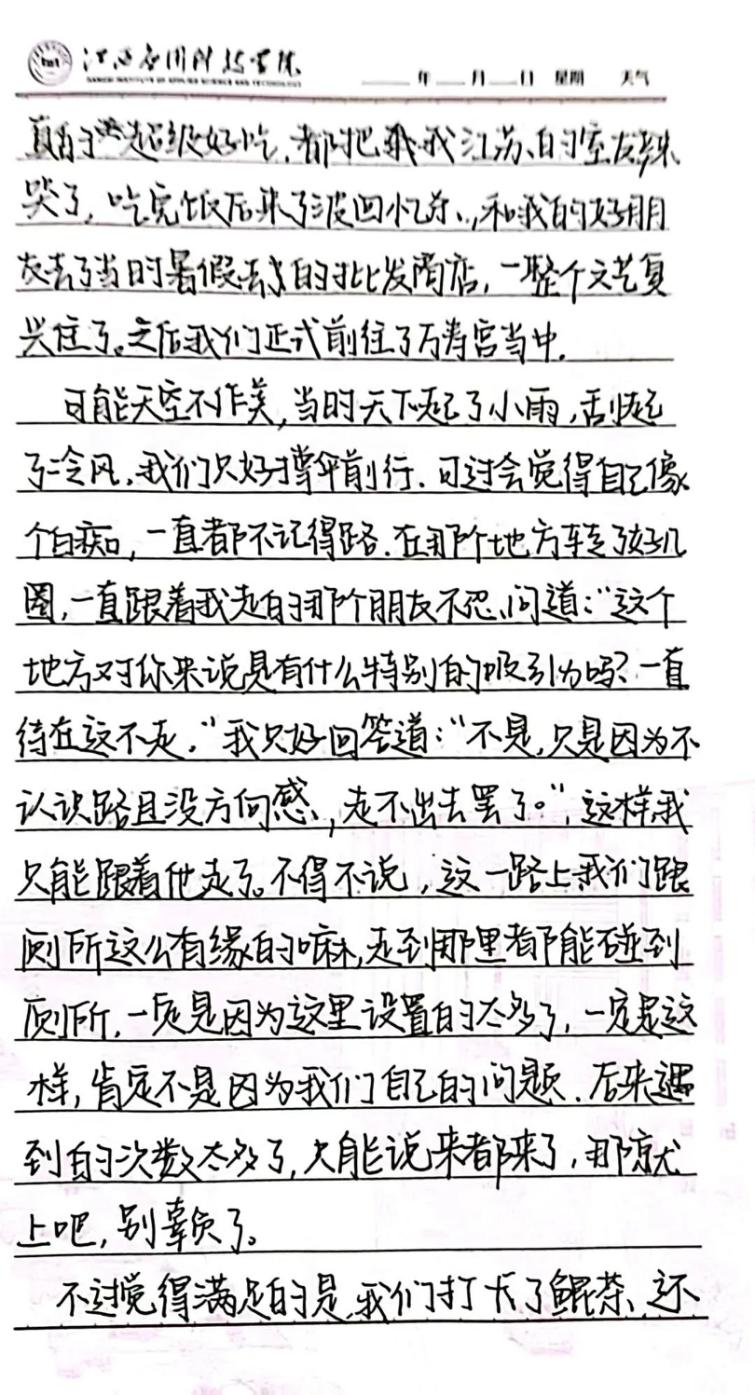 江西应用科技学院
JIANGXI INSTITUTE OF APPLIED SCIENCE AND TECHNOLOGY
年 月 日 星期 天气
真的超级好吃，都把我江苏的室友辣
哭了，吃完饭后来了波回忆杀，和我的好朋
友去了当时暑假去的批发商店，一整个文艺复
兴住了。之后我们正式前往了万寿宫当中。
可能天空不作美，当时天下起了小雨，刮起
了冷风，我们只好撑伞前行。可过会觉得自己像
个白痴，一直都不记得路。在那个地方转了好几
圈，一直跟着我走的那个朋友不忍问道：“这个
地方对你来说是有什么特别的吸引力吗？一直
待在这不走。”我只好回答道：“不是，只是因为不
认识路且没方向感，走不出去罢了。”，这样我
只能跟着他走了。不得不说，这一路上我们跟
厕所这么有缘的嘛，走到那里都能碰到
厕所，一定是因为这里设置的太多了，一定是这
样，肯定不是因为我们自己的问题。后来遇
到的次数太多了，只能说来都来了，那就
上吧，别辜负了。
不过觉得满足的是，我们打卡了鲲茶、还